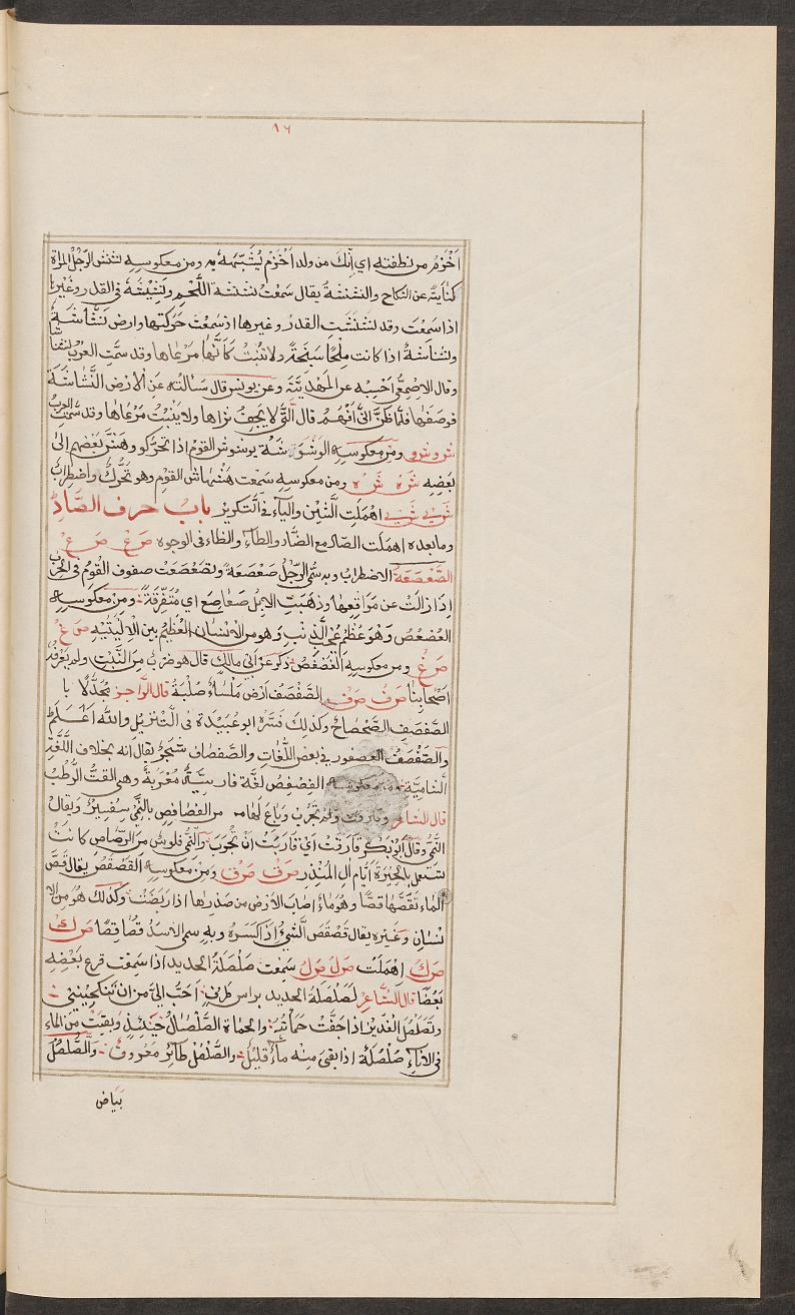 ٩٦
اَخْزَمُ من نطفته اي انّك من ولد اَخْزَم يُشَبِّهُهُ به ومن معكوسه نشنش الرّجُل المراة
كنايةً عن النكاح والنشنشةُ يقال سَمعْتُ نشنشة اللَّحمِ ونَشِيْشَهُ في القدر وغيرها
اذا سَمِعْتَ وقد نشنشتِ القدرُ وغيرها اذ سُمعَتْ حَرَكتها وارض نَشّاشَةٌ
ونَشْناشَةٌ اذا كانت مِلْحًا سَبَخةً ولا تنبُتُ كَأَنَّها مَرْعاها وقد سمَّتِ العرب
وقال الاصمعيّ احسِبُه عن المهديّة وعن يونس قال سَالته عن الارض النشّاشة
فوصفها فلمّا ظنَّ انّي اَفْهَم قال التي لا يجفّ ثراها ولا ينبُتُ مَرْعاها وقد سمّت العرب
ش و ش و ومن معكوسه الوَشْوَشَة يوشوش القومُ اذا تحرّكو وهَشَّ بَعْضهم الى
بَعْضِه ش ه ش ه ومن معكوسه سمعت هَشْهاش القوم وهو تَحَرُّكٌ واضطرابٌ
ش ي ش ي اهملت الشين والياء في التكرير باب حرف الصّادِ
وما بعده اهملَت الصّاد مع الضّاد والطاء والظاء في الوجوه ص ع ص ع
الصَّعْصَعَةُ الاضطرابُ وبه سُمّي الرّجُل صَعْصَعةً وتصَعْصَعَت صفوف القوم في الحَرْبِ
اِذا زالَتْ عن مَواقِعِها وذهَبَت الابِلُ صَعاصِعَ اي مُتَفرِّقةً ومن معكوسه
العُصْعُصُ وَهُوَ عَظْمُ عَجْبِ الذَّنَب وهو من الانسان العَظْمُ بين الاليتيه ص غ
ص غ ومن معكوسه الغَصْغَصُ ذكر عن ابي مالكٍ قال هو ضربٌ من النَّبْت ولم يَعْرِفْهُ
اَصْحابنا ص ف ص ف الصَّفْصَف اَرْض مَلْساءُ صُلْبَةٌ قال الرّاجز مُجَدَّلًا با
الصّفصَفِ الصَّحْصاح وكذلك فسَّرَهُ ابو عُبَيْدة في التّنزيل والله اَعْلَم
والصَّفْصَفُ العصفور في بعض اللُّغات والصّفصاف شجرٌ يقال انه بخلاف اللُّغةِ
الشاميّة ومن معكوسه الفِصْفِصُ لغة فارسيّةٌ مُعَرَّبةٌ وهي القتُّ الرّطْبُ
قال الشاعر وقارفت ولم تَجْرَب وباع لها من الفصافِص بالنُّمّي سِفْسِيرُ ويقال
النُّمّي وقال اَبُو بَكرٍ قارَفَتْ اي قارَبَتْ اَنْ تَجْرَبَ والنُّمّي فلوس من الرّصاص كانت
تستعمل بالحِيْرة ايّام ال المُنْذِرِ ص ق ص ق ومن معكوسه القَصْقَصُ يقال قَصَّ
الماء نَقَصَّها قصًّا وهُو ما اصابَ الارضَ من صَدْرها اذا رَبَضَتْ وكذلك هُو من الا
نسان وغيره يقال قَصْقَصَ الشّيءَ اذا كَسَرَهُ وبه سمّي الاسَدُ قُصاقِصًا ص ك
ص ك اهملت ص ل ص ل سَمِعْت صَلْصَلةُ الحديد اذا سَمِعْت قرع بَعْضِهِ
بَعْضًا قال الشّاعر لَصَلْصَلةُ الحديد براس احَبُّ اليّ من ان تنكحيني
وتَصَلْصَلَ الغدير اذا جَفَّتْ حَمأتُهُ والحماة الصّلصالُ حينئذٍ وبقيَتْ من الماء
في الاناء صُلْصُلَةٌ اذا بقيَ منه ماءٌ قليلٌ والصُّلْصُل طائرٌ معروف والصُّلْصُلُ
بَيَاض